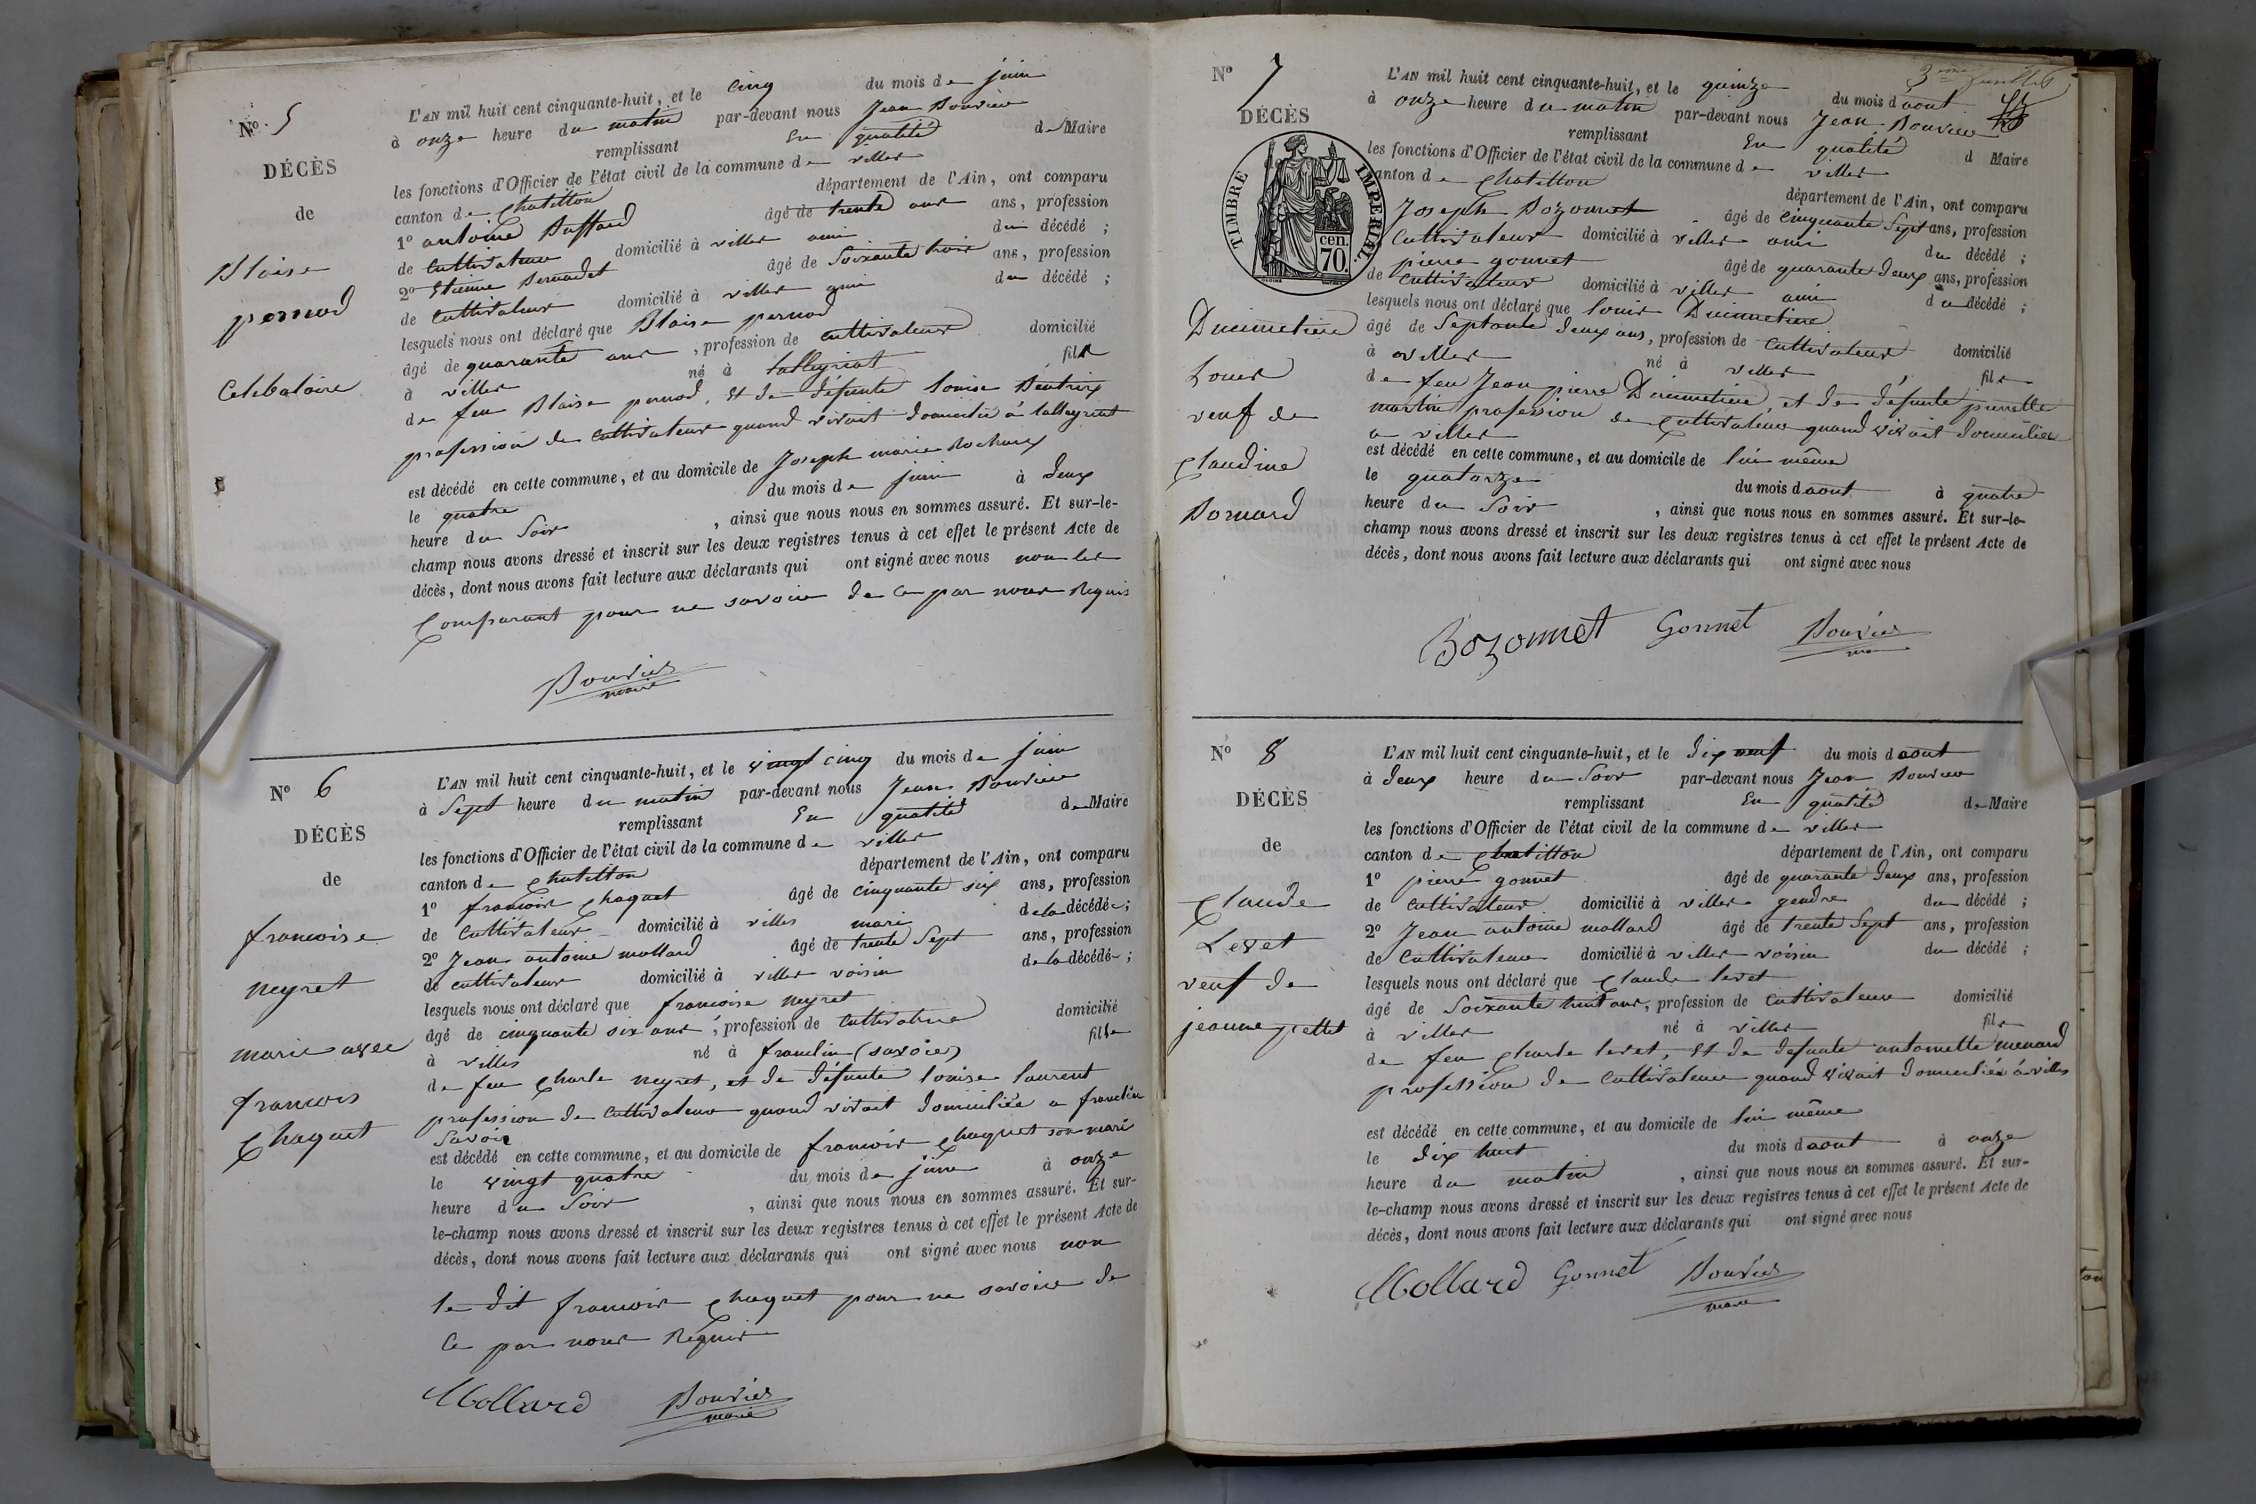 N° 5
DÉCÈS
de
Blaise
pernod
Celebataire
L'AN mil huit cent cinquante-huit, et le cinq du mois de juin
à onze heure du matin par-devant nous Jean Bouvier
remplissant En qualité de Maire
les fonctions d'Officier de l'état civil de la commune de villes
canton de Chatillon département de l'Ain, ont comparu
1° antoine Buffard âgé de trente ans ans, profession
de Cultivateur domicilié à villes ami du décédé ;
2° Etienne Bernadet âgé de Soixante trois ans, profession
de Cultivateur domicilié à villes ami du décédé ;
lesquels nous ont déclaré que Blaise pernod
âgé de quarante ans , profession de cultivateur domicilié
à villes né à Lalleyriat fils
de feu Blaise pernod, et de défunte louise
profession de Cultivateur quand vivait domicilié à lalleyriat
est décédé en cette commune, et au domicile de Joseph marie
le quatre du mois de juin à deux
heure du Soir , ainsi que nous nous en sommes assuré. Et sur-le-
champ nous avons dressé et inscrit sur les deux registres tenus à cet effet le présent Acte de
décès, dont nous avons fait lecture aux déclarants qui ont signé avec nous non les
Comparant pour ne savoir de ce par nous Requis
Bouvier
maire
N° 6
DÉCÈS
de
francoise
neyret
marie avec
francois
Chaquet
L'AN mil huit cent cinquante-huit, et le vingt cinq du mois de juin
à Sept heure du matin par-devant nous Jean Bouvier
remplissant En qualité de Maire
les fonctions d'Officier de l'état civil de la commune de villes
canton de Chatillon département de l'Ain, ont comparu
1° francois Chaquet âgé de cinquante six ans, profession
de Cultivateur domicilié à villes mari de la décédée ;
2° Jean antoine mollard âgé de trente Sept ans, profession
de cultivateur domicilié à villes voisin de la décédée ;
lesquels nous ont déclaré que francoise neyret
âgé de cinquante six ans , profession de Cultivatrice domicilié
à villes né à franclin (savoie) fille
de feu Charle neyret, et de défunte louise laurent
profession de Cultivateur quand vivait domiciliée a franclin
Savoie
est décédé en cette commune, et au domicile de francois Chaquet son mari
le vingt quatre du mois de juin à onze
heure du Soir , ainsi que nous nous en sommes assuré. Et sur-
le-champ nous avons dressé et inscrit sur les deux registres tenus à cet effet le présent Acte de
décès, dont nous avons fait lecture aux déclarants qui ont signé avec nous non
le dit francois Chaquet pour ne savoir de
Ce par nous Requis
Mollard Bouvier
maire
3me
N° 7
DÉCÈS
TIMBRE IMPERIAL
cen.
70.
Ducimetiere
Louis
veuf de
Claudine
Bornard
L'AN mil huit cent cinquante-huit, et le quinze du mois d aout
à onze heure du matin par-devant nous Jean Bouvier
remplissant En qualité d Maire
les fonctions d'Officier de l'état civil de la commune de villes
canton de Chatillon département de l'Ain, ont comparu
Joseph Bozonnet âgé de cinquante Sept ans, profession
Cultivateur domicilié à villes ami du décédé ;
pierre gonnet âgé de quarante deux ans, profession
de Cultivateur domicilié à villes ami du décédé ;
lesquels nous ont déclaré que louis Ducimetiere
âgé de Septante deux ans, profession de Cultivateur domicilié
à villes né à villes fils
de feu Jean pierre Ducimetiere, et de défunte pierrette
martin profession de Cultivateur quand vivait domiciliés
a villes
est décédé en cette commune, et au domicile de lui même
le quatorze du mois d aout à quatre
heure du Soir , ainsi que nous nous en sommes assuré. Et sur-le-
champ nous avons dressé et inscrit sur les deux registres tenus à cet effet le présent Acte de
décès, dont nous avons fait lecture aux déclarants qui ont signé avec nous
Bozonnet Gonnet Bouvier
N° 8
DÉCÈS
de
Claude
Levet
veuf de
jeanne
L'AN mil huit cent cinquante-huit, et le dix neuf du mois d aout
à deux heure du Soir par-devant nous Jean Bouvier
remplissant En qualité de Maire
les fonctions d'Officier de l'état civil de la commune de villes
canton de Chatillon département de l'Ain, ont comparu
1° pierre gonnet âgé de quarante deux ans, profession
de Cultivateur domicilié à villes gendre du décédé ;
2° Jean antoine mollard âgé de trente Sept ans, profession
de Cultivateur domicilié à villes voisin du décédé ;
lesquels nous ont déclaré que Claude levet
âgé de Soixante huit ans, profession de Cultivateur domicilié
à villes né à villes fils
de feu Charle levet, et de defunte antoinette menard
profession de Cultivateur quand vivait domiciliés à villes
est décédé en cette commune, et au domicile de lui même
le dix huit du mois d aout à onze
heure du matin , ainsi que nous nous en sommes assuré. Et sur-
le-champ nous avons dressé et inscrit sur les deux registres tenus à cet effet le présent Acte de
décès, dont nous avons fait lecture aux déclarants qui ont signé avec nous
Mollard Gonnet Bouvier
maire